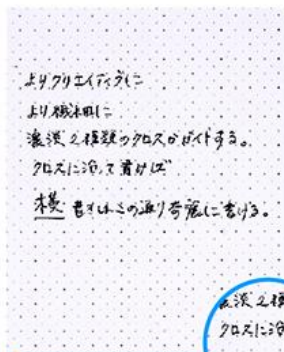 よりクリエイティブに
より機能的に
濃淡2種類のクロスがガイドする。
クロスに沿って書けば
横書きはこの通り奇麗に書ける。
濃淡2種
クロスに沿